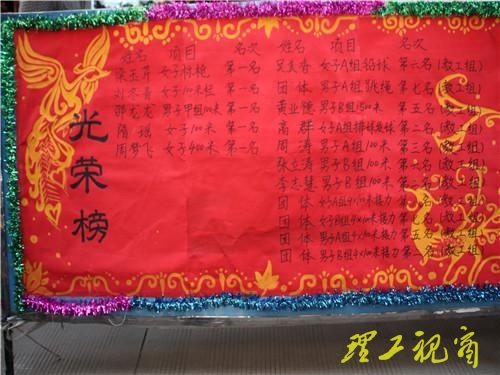 光荣榜
姓名 项目 名次
梁玉芹 女子标枪 第一名
刘冬青 女子100米栏 第一名
邵龙龙 男子甲组100米 第一名
隋瑶 女子100米 第一名
周梦飞 女子400米 第一名
姓名 项目 名次
吴美香 女子A组铅球 第六名(教工组)
团体 男子A组跳绳 第七名(教工组)
黄业德 男子B组1500米 第五名(教工组)
高群 女子A组排球发球 第二名(教工组)
周涛 男子A组100米 第三名(教工组)
张立涛 男子B组100米 第六名(教工组)
李志慧 男子B组100米 第二名(教工组)
团体 女子A组4×100米接力 第六名(教工组)
团体 女子B组4×100米接力 第七名(教工组)
团体 男子A组4×100米接力 第五名(教工组)
团体 男子B组4×100米接力 第二名(教工组)
理工视窗